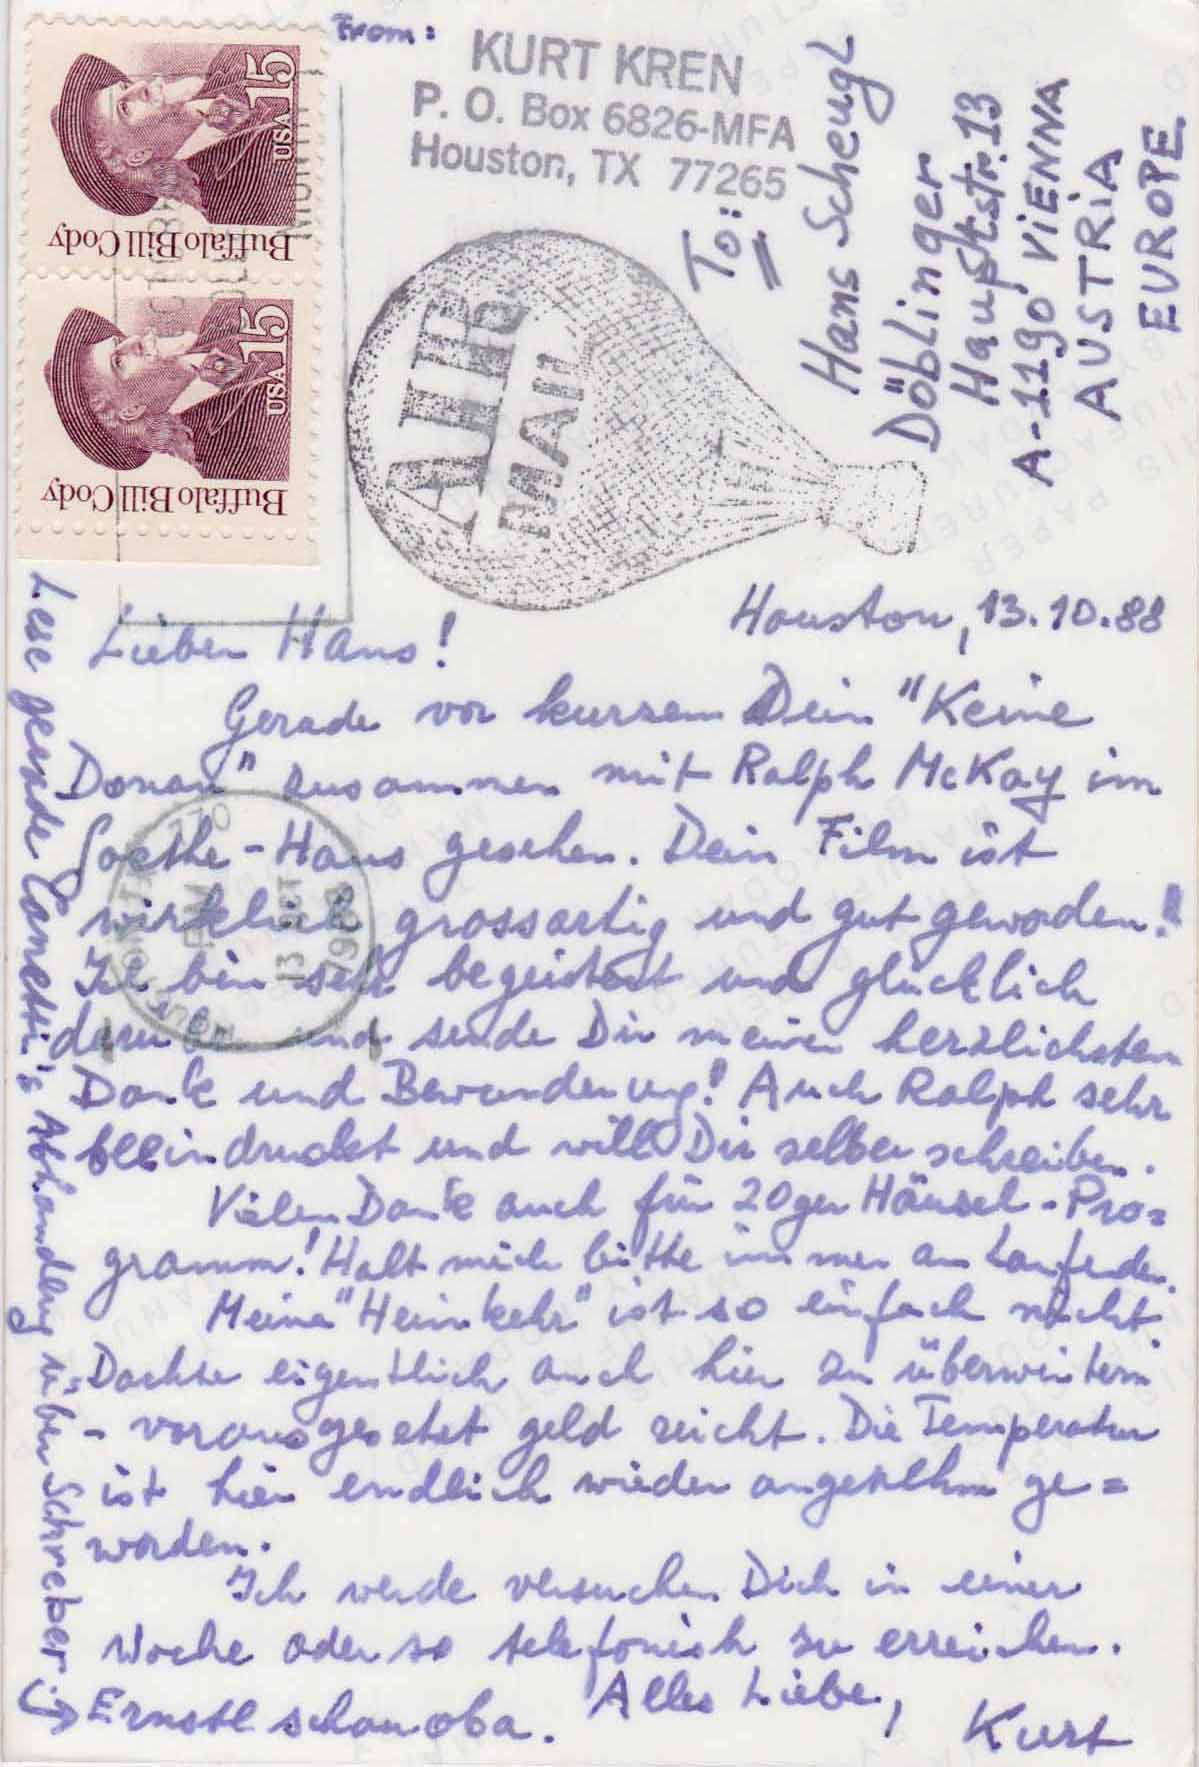 From:
KURT KREN
P. O. Box 6826-MFA
Houston, TX 77265
To:
Hans Scheugl
Döblinger
Hauptstr. 13
A-1190 ViENNA
AUSTRiA
EUROPE
USA 15
Buffalo Bill Cody
USA 15
Buffalo Bill Cody
AIR
MAIL
PM
13 OCT
1988
Houston, 13.10.88
Lieber Hans!
Gerade vor kurzem Dein "Keine
Donau" zusammen mit Ralph McKay im
Goethe-Haus gesehen. Dein Film ist
wirklich grossartig und gut geworden!
Ich bin sehr begeistert und glücklich
darüber und sende Dir meinen herzlichsten
Dank und Bewunderung! Auch Ralph sehr
beeindruckt und will Dir selber schreiben.
Vielen Dank auch für 20ger Häusel-Pro=
gramm! Halt mich bitte immer am Laufenden.
Meine "Heimkehr" ist so einfach nicht.
Dachte eigentlich auch hier zu überwintern
- vorausgesetzt geld reicht. Die Temperatur
ist hier endlich wieder angenehm ge=
worden.
Ich werde versuchen Dich in einer
Woche oder so telefonisch zu erreichen.
Alles Liebe,
Kurt
Lese gerade Canetti's Abhandlung über Schreber
Ernstl schauoba.